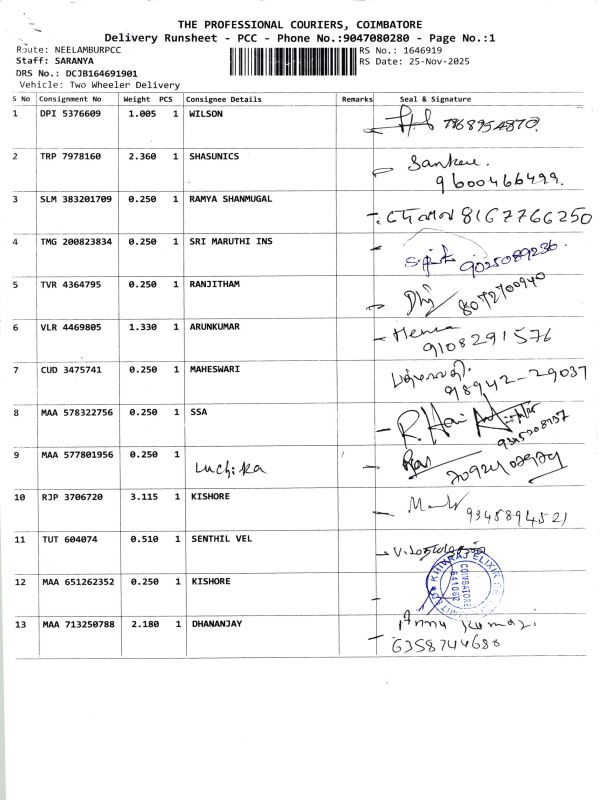 THE PROFESSIONAL COURIERS, COIMBATORE
Delivery Runsheet - PCC - Phone No.:9047080280 - Page No.:1
Route: NEELAMBURPCC
Staff: SARANYA
DRS No.: DCJB164691901
Vehicle: Two Wheeler Delivery
RS No.: 1646919
RS Date: 25-Nov-2025
S No Consignment No Weight PCS Consignee Details Remarks Seal & Signature
1 DPI 5376609 1.005 1 WILSON
2 TRP 7978160 2.360 1 SHASUNICS
9600466499.
3 SLM 383201709 0.250 1 RAMYA SHANMUGAL 8167766250
4 TMG 200823834 0.250 1 SRI MARUTHI INS
9025089236.
5 TVR 4364795 0.250 1 RANJITHAM
8072700940
6 VLR 4469805 1.330 1 ARUNKUMAR
9108291576
7 CUD 3475741 0.250 1 MAHESWARI
98942-29037
8 MAA 578322756 0.250 1 SSA
9 MAA 577801956 0.250 1 Luchika
10 RJP 3706720 3.115 1 KISHORE
9345894521
11 TUT 604074 0.510 1 SENTHIL VEL
12 MAA 651262352 0.250 1 KISHORE
KHIVRAJ ELIXIR
COIMBATORE
641062
13 MAA 713250788 2.180 1 DHANANJAY Kumar.
6358744688